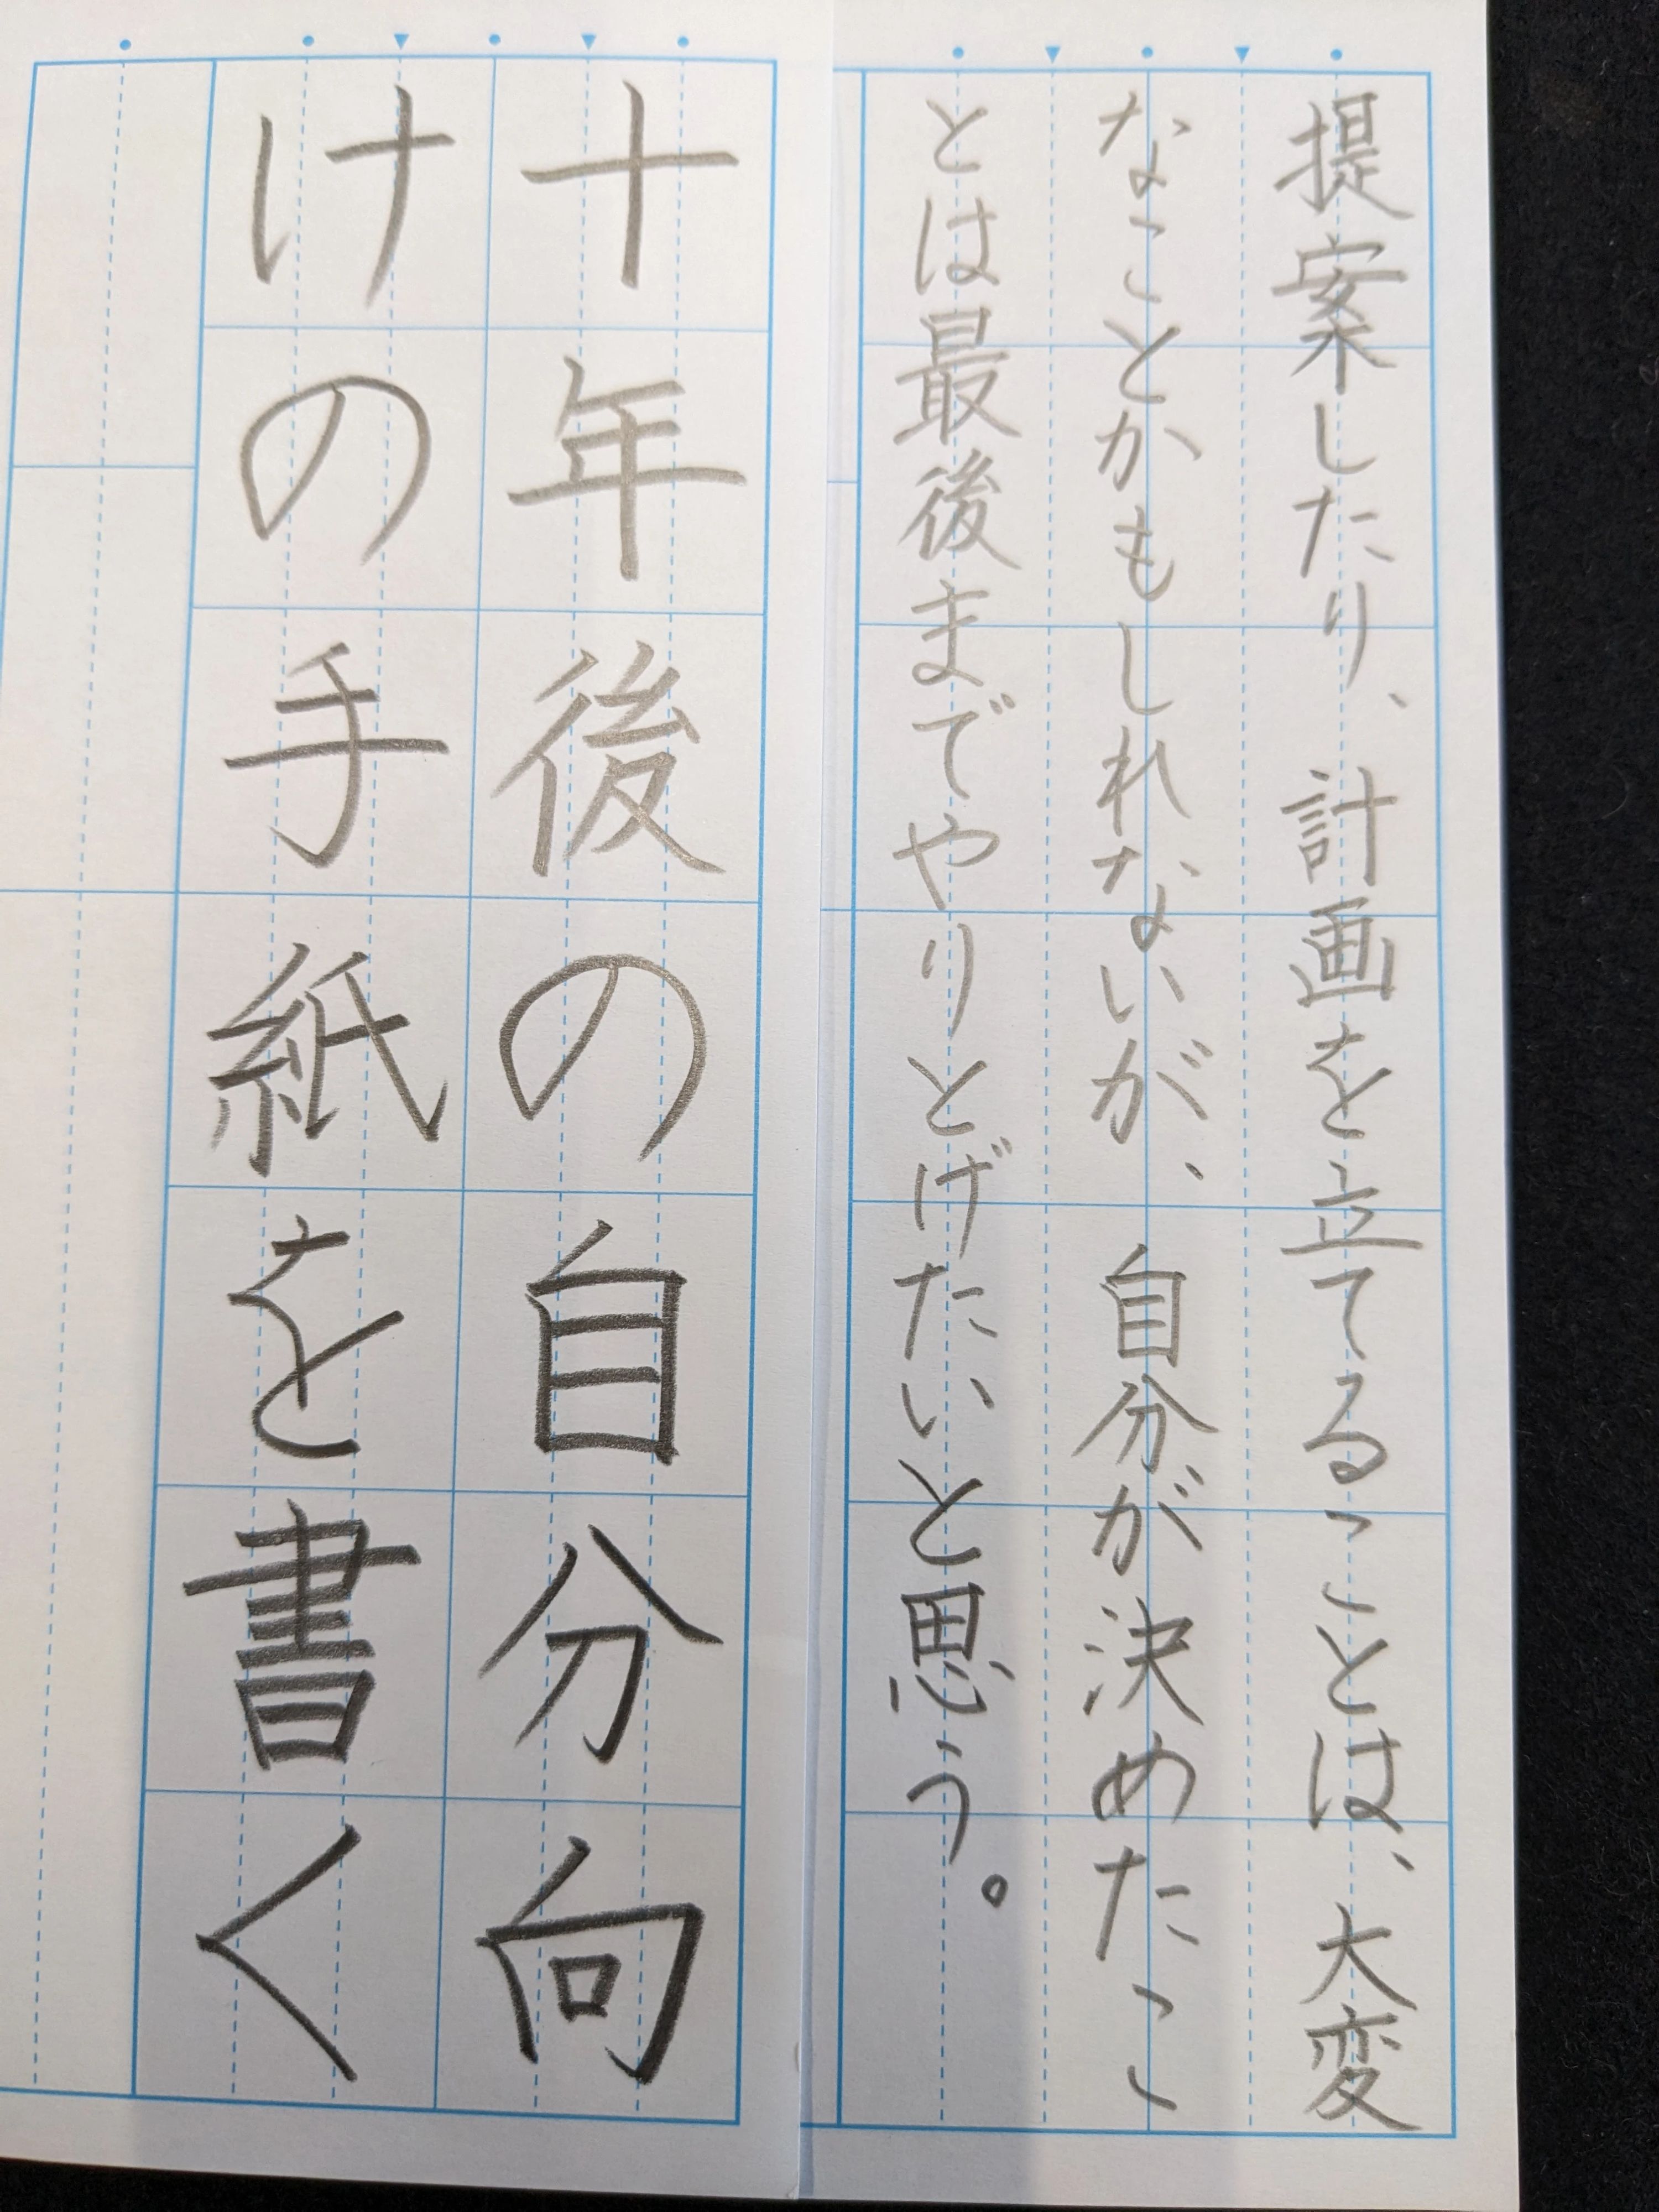 提案したり、計画を立てることは、大変
なことかもしれないが、自分が決めたこ
とは最後までやりとげたいと思う。
十年後の自分向
けの手紙を書く